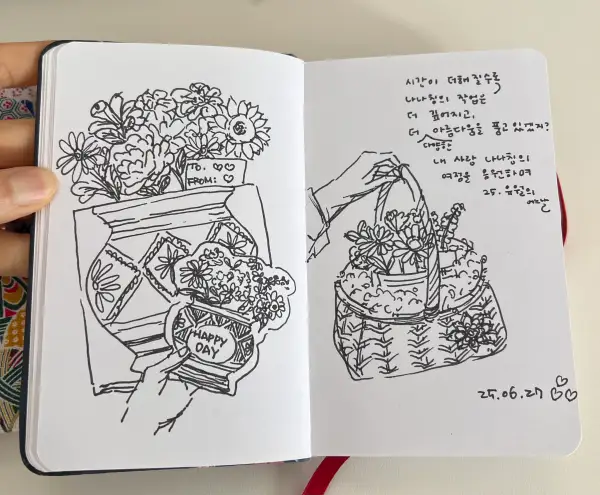 TO. ♡♡
FROM: ♡
HAPPY
DAY
시간이 더해질수록
나나침의 작업은
더 깊어지고,
더 아름다움을 품고 있겠지?
다양한
내 사랑 나나침의
여정을 응원하며
25. 유월의
어느날
25.06.27 ♡♡♡